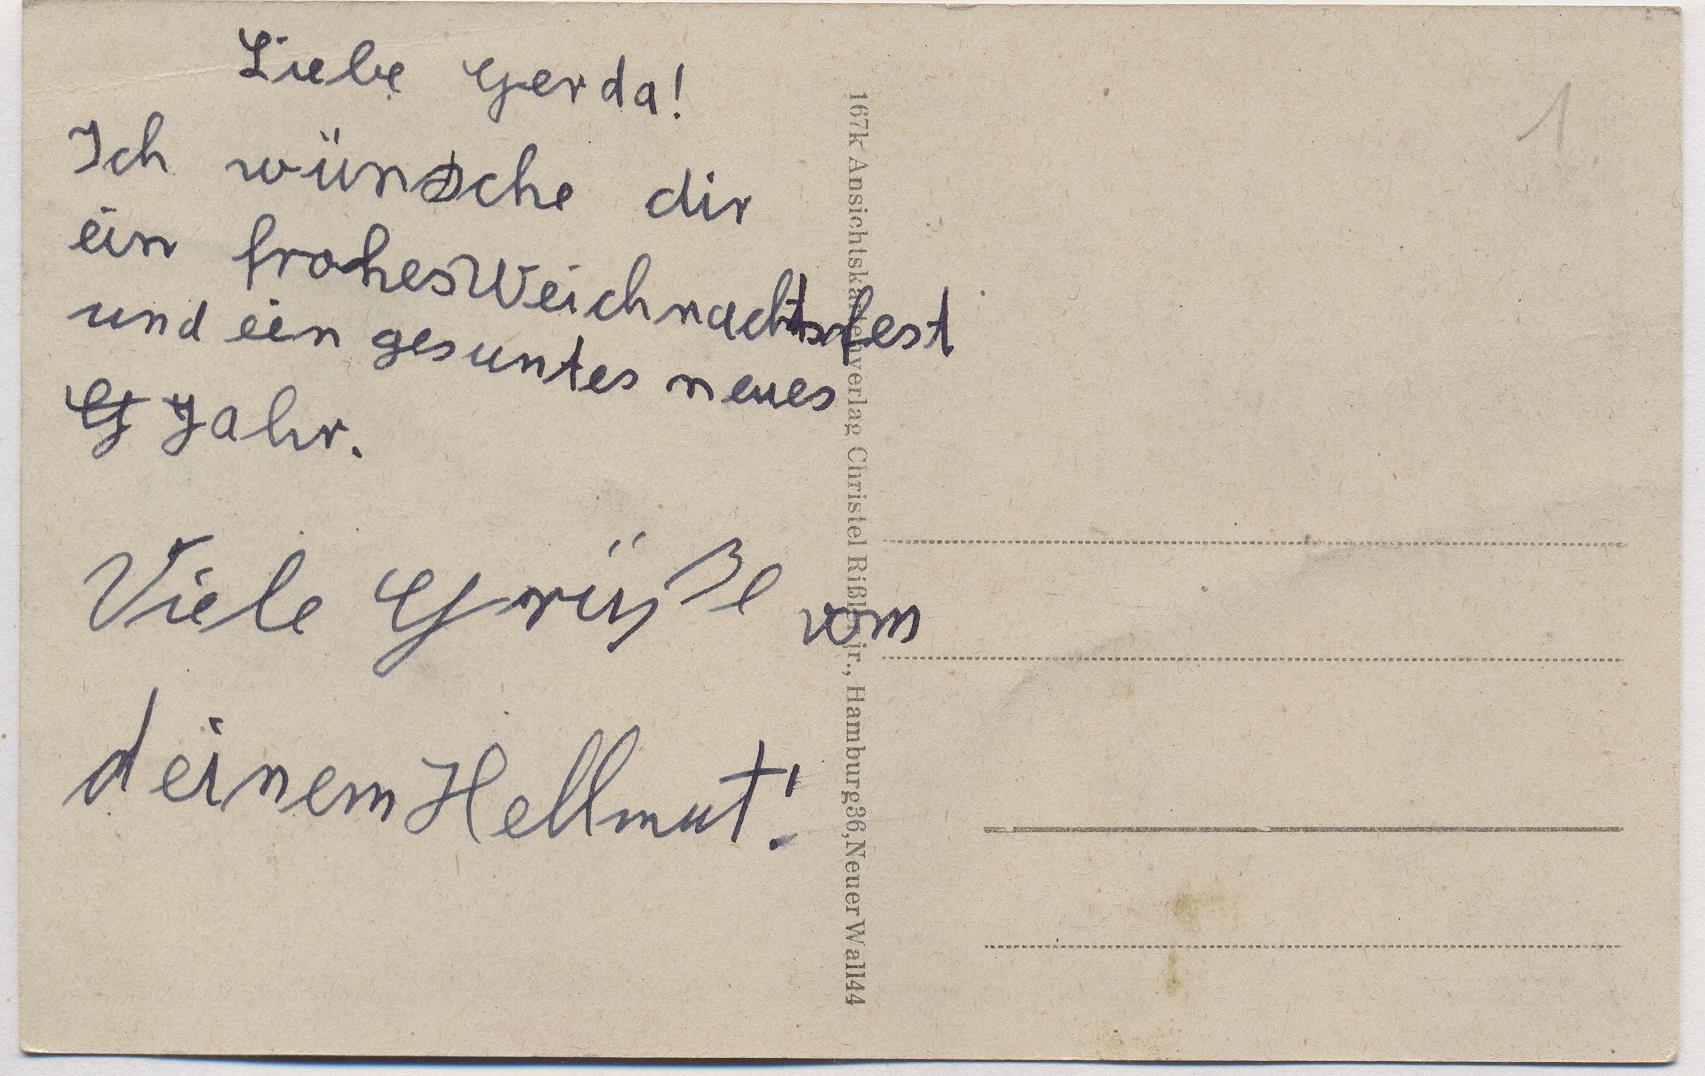 Liebe Gerda!
Ich wünsche dir
ein frohes Weichnachtsfest
und ein gesuntes neues
G Jahr.
Viele Grüße vom
deinem Hellmut!
167k Ansichtskartenverlag Christel Rißler jr., Hamburg 36, Neuer Wall 44
1